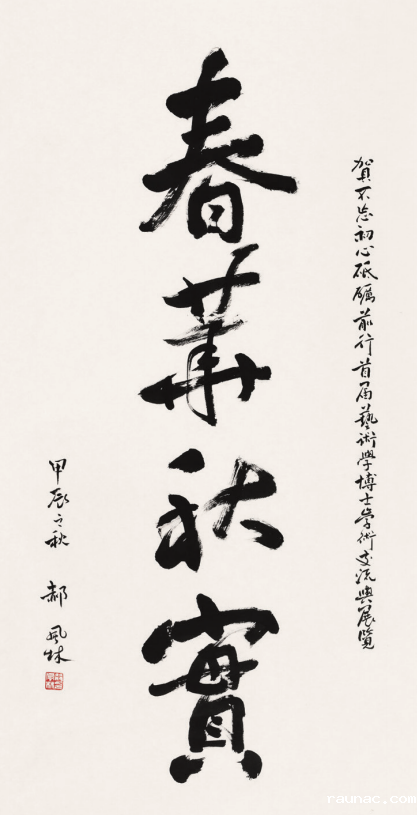 賀不忘初心砥礪前行首屆藝術學博士學術交流與展覽
春華秋實
甲辰之秋 郝風林
raunac.com